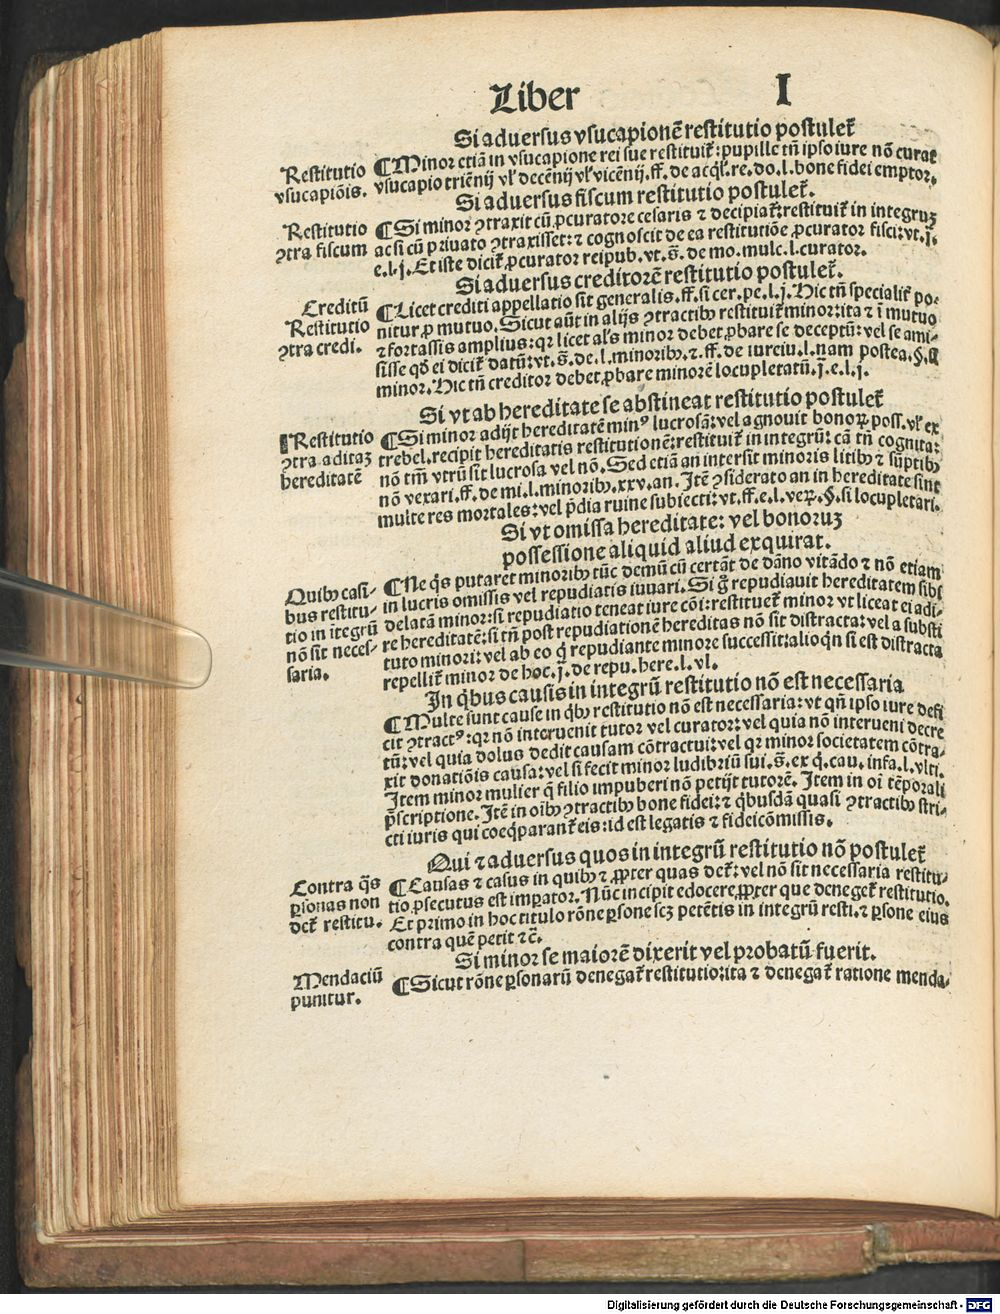 Liber I
Si aduersus vsucapionē restitutio postulet᷑
Restitutio
vsucapiōis.
¶Minor etiā in vsucapione rei sue restituit᷑: pupille tñ ipso iure nō currit
vsucapio triēnij vl' decēnij vl' vicēnij. ff. de acq̄l'. re. do. l. bone fidei emptor.
Si aduersus fiscum restitutio postulet᷑.
Restitutio
ꝯtra fiscum
¶Si minor ꝯtraxit cū ꝓcuratore cesaris ⁊ decipiat᷑: restituit᷑ in integruꝫ
ac si cū priuato ꝯtraxisset: ⁊ cognoscit de ea restitutiōe ꝓcurator fisci: vt. j.
e. l. j. Et iste dicit᷑ ꝓcurator reipub. vt. s̄. de mo. mulc. l. curator.
Si aduersus creditorē restitutio postulet᷑.
Creditū
Restitutio
ꝯtra credi.
¶Licet crediti appellatio sit generalis. ff. si cer. pe. l. j. Hic tñ specialit᷑ po-
nitur ꝓ mutuo. Sicut aūt in alijs ꝯtractibꝰ restituit᷑ minor: ita ⁊ ī mutuo
⁊ fortassis amplius: qr licet al's minor debet ꝓbare se deceptū: vel se ami-
sisse qd̄ ei dicit᷑ datū: vt. s̄. de. l. minoribꝰ. ⁊. ff. de iureiu. l. nam postea. §. si
minor. Hic tñ creditor debet ꝓbare minorē locupletatū. j. e. l. j.
Si vt ab hereditate se abstineat restitutio postulet᷑
Restitutio
ꝯtra aditaꝫ
hereditatē
¶Si minor adijt hereditatē minꝰ lucrosā: vel agnouit bonoꝝ poss. vl' ex
trebel. recipit hereditatis restitutionē: restituit᷑ in integrū: cā tñ cognita:
nō tm̄ vtrū sit lucrosa vel nō. Sed etiā an intersit minoris litibꝰ ⁊ sūptibꝰ
nō vexari. ff. de mi. l. minoribꝰ. xxv. an. Itē ꝯsiderato an in hereditate sint
multe res mortales: vel p̄dia ruine subiecti: vt. ff. e. l. veꝝ. §. si locupletari.
Si vt omissa hereditate: vel bonoruꝫ
possessione aliquid aliud exquirat.
Quibꝰ casi-
bus restitu-
tio in ītegrū
nō sit neces-
saria.
¶Ne q̄s putaret minoribꝰ tūc demū cū certāt de dāno vitādo ⁊ nō etiam
in lucris omissis vel repudiatis iuuari. Si g̊ repudiauit hereditatem sibi
delatā minor: si repudiatio teneat iure cōi: restituet᷑ minor vt liceat ei adi-
re hereditatē: si tñ post repudiationē hereditas nō sit distracta: vel a substi
tuto minori: vel ab eo q̄ repudiante minore successit: alioqn si est distracta
repellit᷑ minor de hoc. j. de repu. here. l. vl.
In q̄bus causis in integrū restitutio nō est necessaria
¶Multe sunt cause in q̄bꝰ restitutio nō est necessaria: vt qn̄ ipso iure defi
cit ꝯtractꝰ: qr nō interuenit tutor vel curator: vel quia nō interueni decre
tū: vel quia dolus dedit causam cōtractui: vel qr minor societatem cōtra-
xit donatiōis causa: vel si fecit minor ludibriū sui. s̄. ex q̄. cau. infa. l. vlti.
Item minor mulier q̄ filio impuberi nō petijt tutorē. Item in oī tēporali
p̄scriptione. Itē in oībꝰ ꝯtractibꝰ bone fidei: ⁊ q̄busdā quasi ꝯtractibꝰ stri-
cti iuris qui coeq̄parant᷑ eis: id est legatis ⁊ fideicōmissis.
Qui ⁊ aduersus quos in integrū restitutio nō postulet᷑
Contra q̄s
ꝑsonas non
det᷑ restitu.
¶Causas ⁊ casus in quibꝰ ⁊ ꝓpter quas det᷑: vel nō sit necessaria restitu-
tio ꝓsecutus est impator. Nūc incipit edocere ꝓpter que deneget᷑ restitutio.
Et primo in hoc titulo rōne ꝑsone scꝫ petētis in integrū resti. ⁊ ꝑsone eius
contra quē petit ⁊ c̄.
Si minor se maiorē dixerit vel probatū fuerit.
Mendaciū
punitur.
¶Sicut rōne ꝑsonarū denegat᷑ restitutio: ita ⁊ denegat᷑ ratione menda-
Digitalisierung gefördert durch die Deutsche Forschungsgemeinschaft - DFG